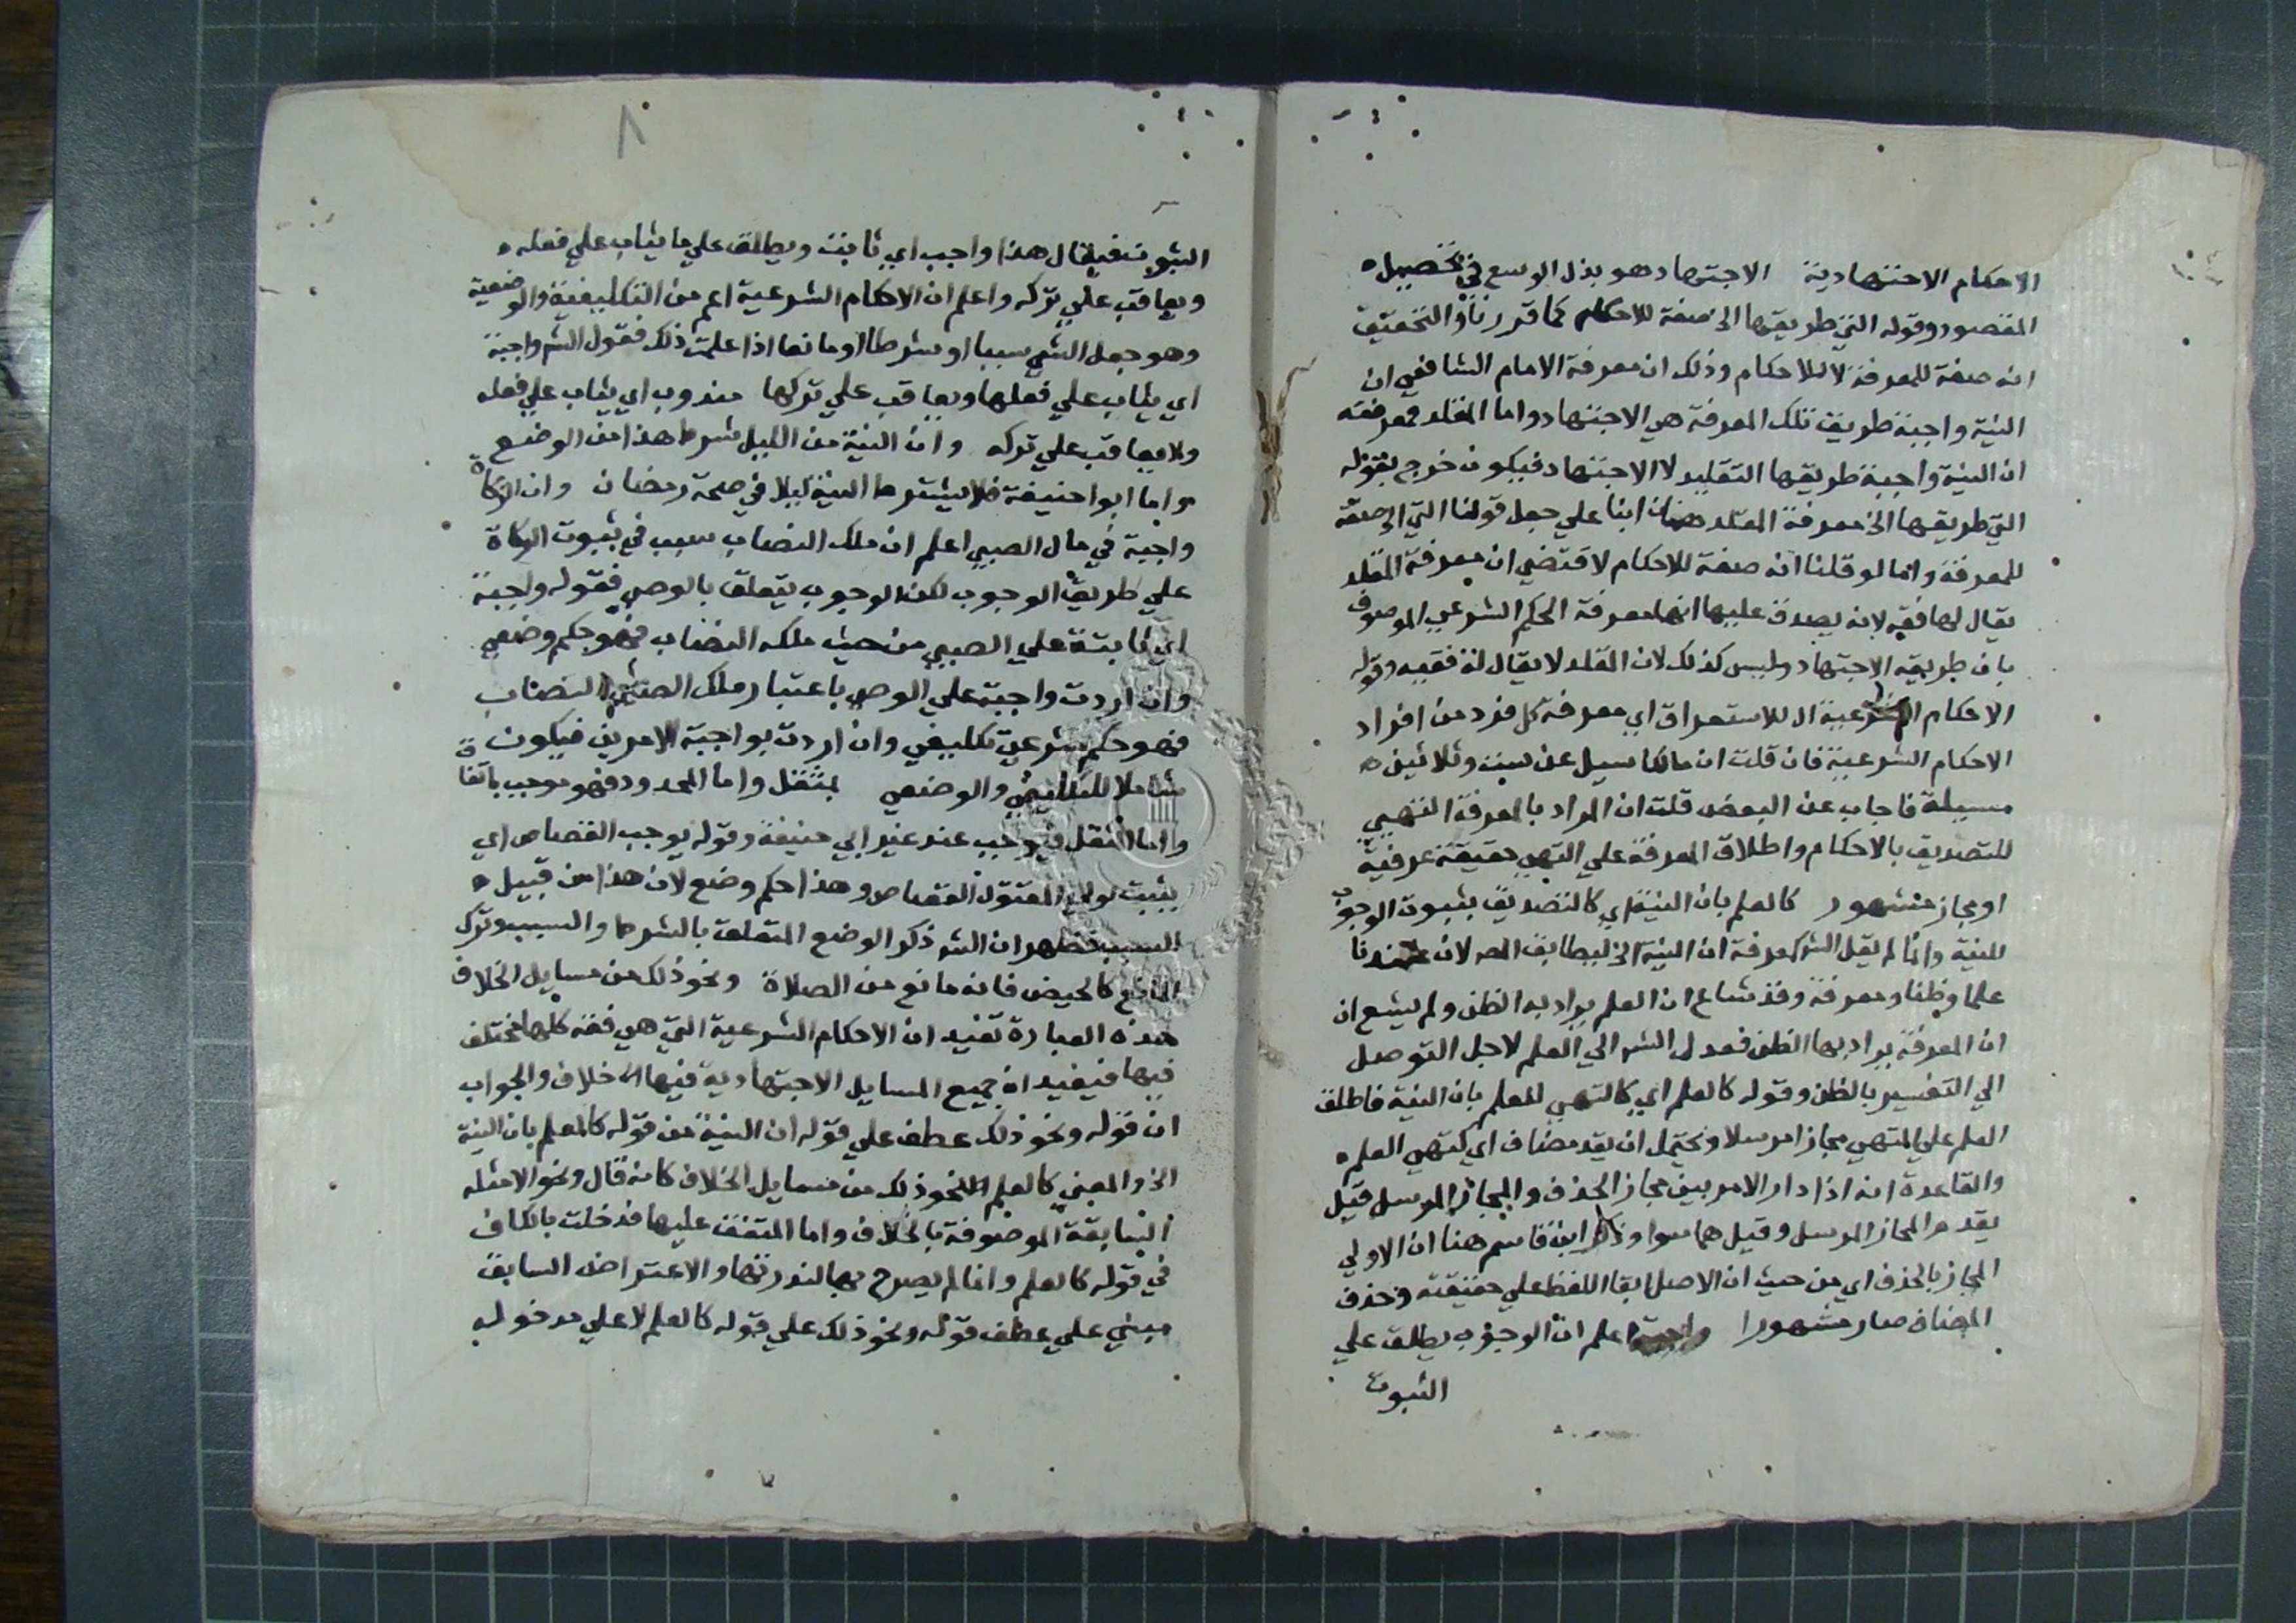 الاحكام الاجتهادية الاجتهاد هو بذل الوسع في تحصيل
المقصود وقوله التي طريقها الى صفة للاحكام كما قررنا والتحقيق
انه صفة للمعرفة لا للاحكام وذلك ان معرفة الامام الشافعي ان
النية واجبة طريق تلك المعرفة هي الاجتهاد واما المقلد فمعرفته
ان النية واجبة طريقها التقليد لا الاجتهاد فيكون خرج بقوله
التي طريقها الخ معرفة المقلد بنا علي جعل قولنا التي الخ صفة
للمعرفة واما لو قلنا انه صفة للاحكام لاقتضي ان معرفة المقلد
يقال لها فقه لانه يصدق عليها انها معرفة الحكم الشرعي الموصوف
بان طريقه الاجتهاد وليس كذلك لان المقلد لا يقال له فقيه وقوله
الاحكام الشرعية ال للاستغراق اي معرفة كل فرد من افراد
الاحكام الشرعية فان قلت ان مالكا سيل عن ست وثلاثين
مسيلة فاجاب عن البعض قلت ان المراد بالمعرفة التهيي
للتصديق بالاحكام واطلاق المعرفة علي التهيي حقيقة عرفية
او مجاز مشهور كالعلم بان النية اي كالتصديق بثبوت الوجوب
للنية وانما لم يقل الشر كمعرفة ان النية الخ ليطابق المص لان عندنا
علما وظنا ومعرفة وقد شاع ان العلم يراد به الظن ولم يشع ان
ان المعرفة يراد بها الظن فعدل الشر الي العلم لاجل التوصل
الي التفسير بالظن وقوله كالعلم اي كالتهيي للعلم بان النية فاطلق
العلم علي التهيي مجازا مرسلا ويحتمل ان يقدر مضاف اي كتهيي العلم
والقاعدة انه اذا دار الامر بين مجاز الحذف والمجاز المرسل قيل
يقدم المجاز المرسل وقيل هما سوا وذكر ابن قاسم هنا ان الاولي
المجاز بالحذف اي من حيث ان الاصل ابقا اللفظ علي حقيقته وحذف
المضاف صار مشهورا واجبة اعلم ان الوجوب يطلق علي
الثبوت
٨
الثبوت فيقال هذا واجب اي ثابت ويطلق علي ما يثاب علي فعله
ويعاقب علي تركه واعلم ان الاحكام الشرعية اعم من التكليفية والوضعية
وهو جعل الشي سببا او شرطا او مانعا اذا علمت ذلك فقول الشر واجبة
اي يثاب علي فعلها ويعاقب علي تركها مندوب اي يثاب علي فعله
ولا يعاقب علي تركه وان النية من الليل شرط هذا من الوضع
واما ابو حنيفة فلا يشترط النية ليلا في صحة رمضان وان الزكاة
واجبة في مال الصبي اعلم ان ملك النصاب سبب في ثبوت الزكاة
علي طريق الوجوب لكن الوجوب يتعلق بالوصي فقوله واجبة
اي ثابتة علي الصبي من حيث ملكه النصاب فهو حكم وضعي
وان اردت واجبة علي الوصي باعتبار ملك الصبي النصاب
فهو حكم شرعي تكليفي وان اردت بواجبة الامرين فيكون
شاملا للتكليفي والوضعي بمثقل واما المحدود فهو موجب باتفاق
واما المثقل فيوجب عند غير ابي حنيفة وقوله يوجب القصاص اي
يثبت لولي المقتول القصاص وهذا حكم وضع لان هذا من قبيل
السبب فظهر ان الشر ذكر الوضع المتعلق بالشرط والسبب وترك
المانع كالحيض فانه مانع من الصلاة ونحو ذلك من مسايل الخلاف
هذه العبارة تفيد ان الاحكام الشرعية التي هي فقه كلها مختلف
فيها فيفيد ان جميع المسايل الاجتهادية فيها الاختلاف والجواب
ان قوله ونحو ذلك عطف علي قوله ان النية من قوله كالعلم بان النية
الخ والمعني كالعلم بنحو ذلك من مسايل الخلاف كانه قال ونحو الامثله
السابقة الموصوفة بالخلاف واما المتفق عليها فدخلت بالكاف
في قوله كالعلم وانما لم يصرح بها لندرتها والاعتراض السابق
مبني علي عطف قوله ونحو ذلك علي قوله كالعلم لا علي مدخوله